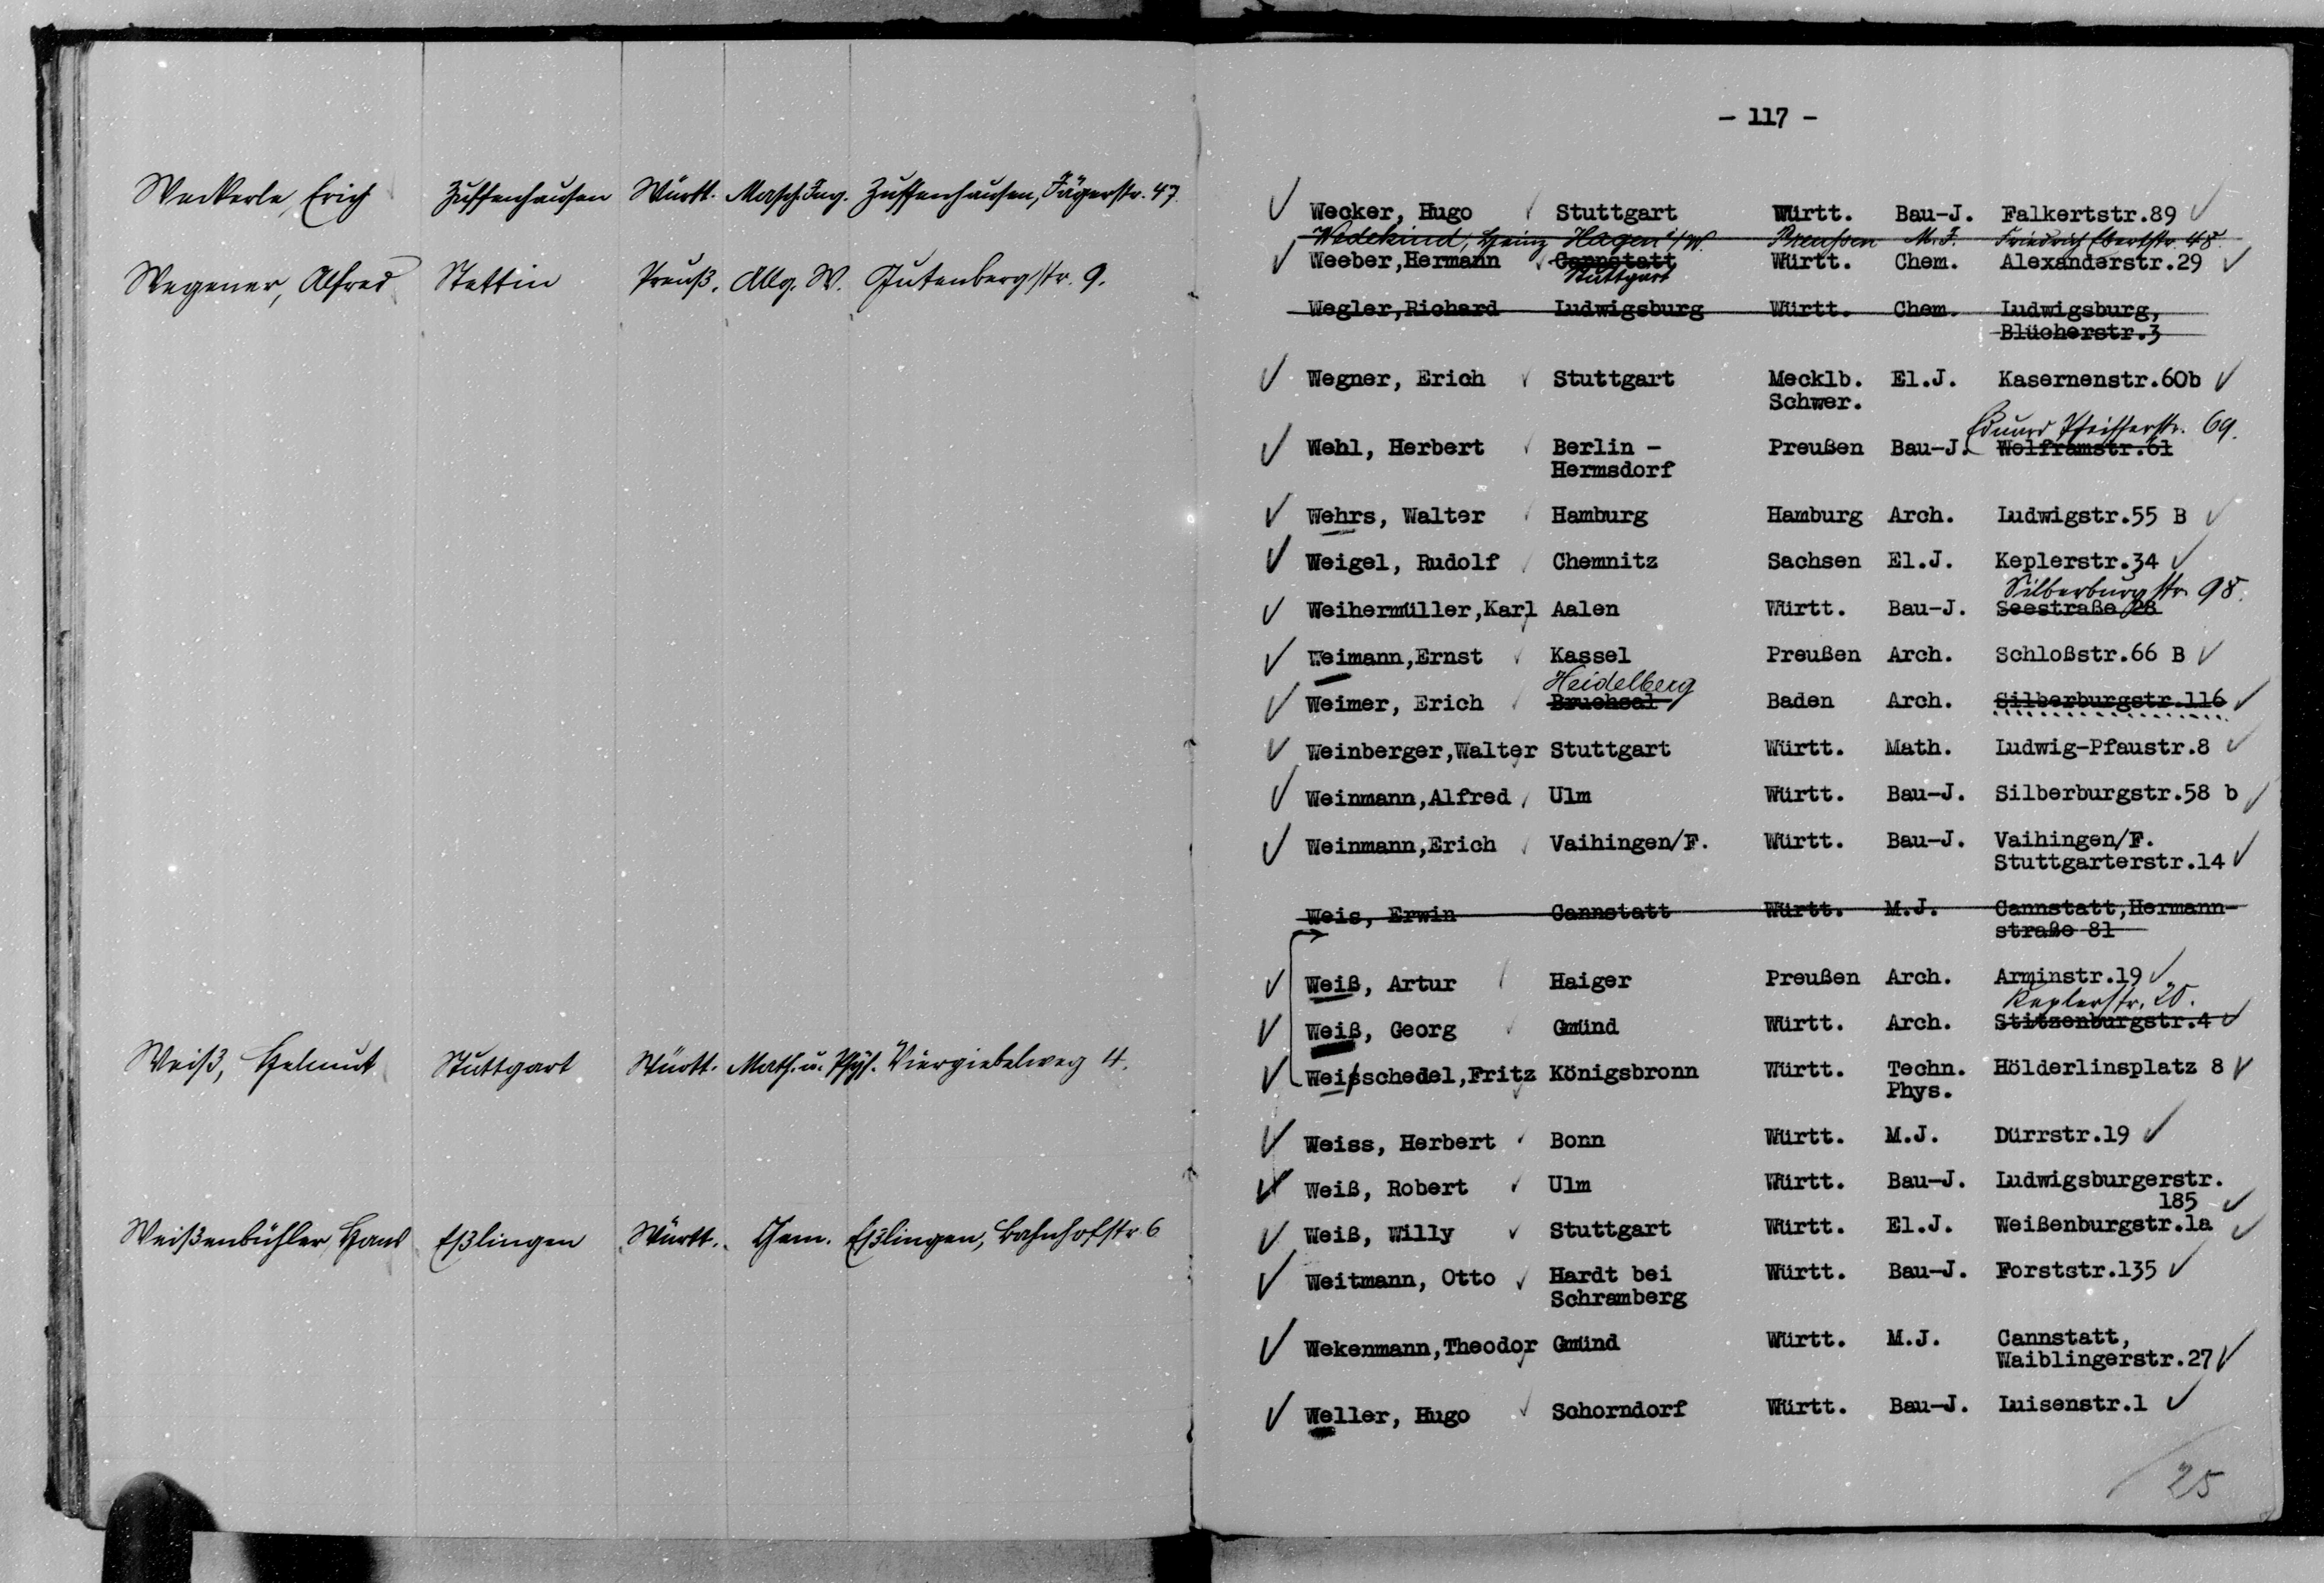 Weckerle, Erich Zuffenhausen Württ. Masch. Ing. Zuffenhausen, Jägerstr. 47.
Wegener, Alfred Stettin Preuß. Allg. W. Gutenbergstr. 9.
Weiß, Helmut Stuttgart Württ. Math. u. Phys. Viergiebelweg 4.
Weißenbühler, Hans Eßlingen Württ. Chem. Eßlingen, Bahnhofstr. 6
- 117 -
Wecker, Hugo Stuttgart Württ. Bau-J. Falkertstr.89
Wedekind, Heinz Hagen i/W. Preußen M.J. Friedrich Ebertstr. 48.
Weeber,Hermann Cannstatt Württ. Chem. Alexanderstr.29
Stuttgart
Wegler,Richard Ludwigsburg Württ. Chem. Ludwigsburg,
Blücherstr.3
Wegner, Erich Stuttgart Mecklb. El.J. Kasernenstr.60b
Schwer.
Eduard Pfeifferstr. 69.
Wehl, Herbert Berlin - Preußen Bau-J. Wolframstr.61
Hermsdorf
Wehrs, Walter Hamburg Hamburg Arch. Ludwigstr.55 B
Weigel, Rudolf Chemnitz Sachsen El.J. Keplerstr.34
Silberburgstr. 98.
Weihermüller,Karl Aalen Württ. Bau-J. Seestraße 28
Weimann,Ernst Kassel Preußen Arch. Schloßstr.66 B
Heidelberg
Weimer, Erich Bruchsal Baden Arch. Silberburgstr.116
Weinberger,Walter Stuttgart Württ. Math. Ludwig-Pfaustr.8
Weinmann,Alfred Ulm Württ. Bau-J. Silberburgstr.58 b
Weinmann,Erich Vaihingen/F. Württ. Bau-J. Vaihingen/F.
Stuttgarterstr.14
Weis, Erwin Cannstatt Württ. M.J. Cannstatt,Hermann-
straße 81
Weiß, Artur Haiger Preußen Arch. Arminstr.19
Keplerstr. 20.
Weiß, Georg Gmünd Württ. Arch. Stitzenburgstr.4
Weisschedel,Fritz Königsbronn Württ. Techn. Hölderlinsplatz 8
Phys.
Weiss, Herbert Bonn Württ. M.J. Dürrstr.19
Weiß, Robert Ulm Württ. Bau-J. Ludwigsburgerstr.
185
Weiß, Willy Stuttgart Württ. El.J. Weißenburgstr.1a
Weitmann, Otto Hardt bei Württ. Bau-J. Forststr.135
Schramberg
Wekenmann,Theodor Gmünd Württ. M.J. Cannstatt,
Waiblingerstr.27
Weller, Hugo Schorndorf Württ. Bau-J. Luisenstr.1
25